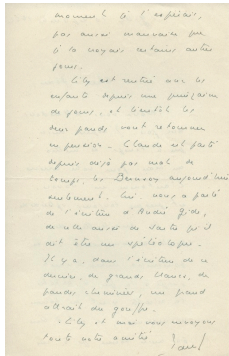 moment là j'espérais,
pas aussi mauvaise que
je la voyais certains autres
jours.
Lily est rentrée avec les
enfants depuis une quinzaine
de jours, et bientôt les
deux grands vont retourner
en pension. Claude est parti
depuis déjà pas mal de
temps, les Beauvoy aujourd'hui
seulement. nous a parlé
de l'écriture d'André Gide,
de dit qu'il
doit être un spéléologue.
Il y a, dans l'écriture de ce
dernier, de grands
grandes cheminées, un grand
attrait du gouffre.
Lily et moi vous envoyons
toute notre amitié